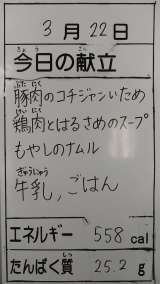 3月22日
きょう こん
今日の献立
ぶたにく
豚肉のコチジャンいため
けいにく
鶏肉とはるさめのスープ
もやしのナムル
ぎゅうにゅう
牛乳,ごはん
エネルギー 558 cal
たんぱく質 25.2 g